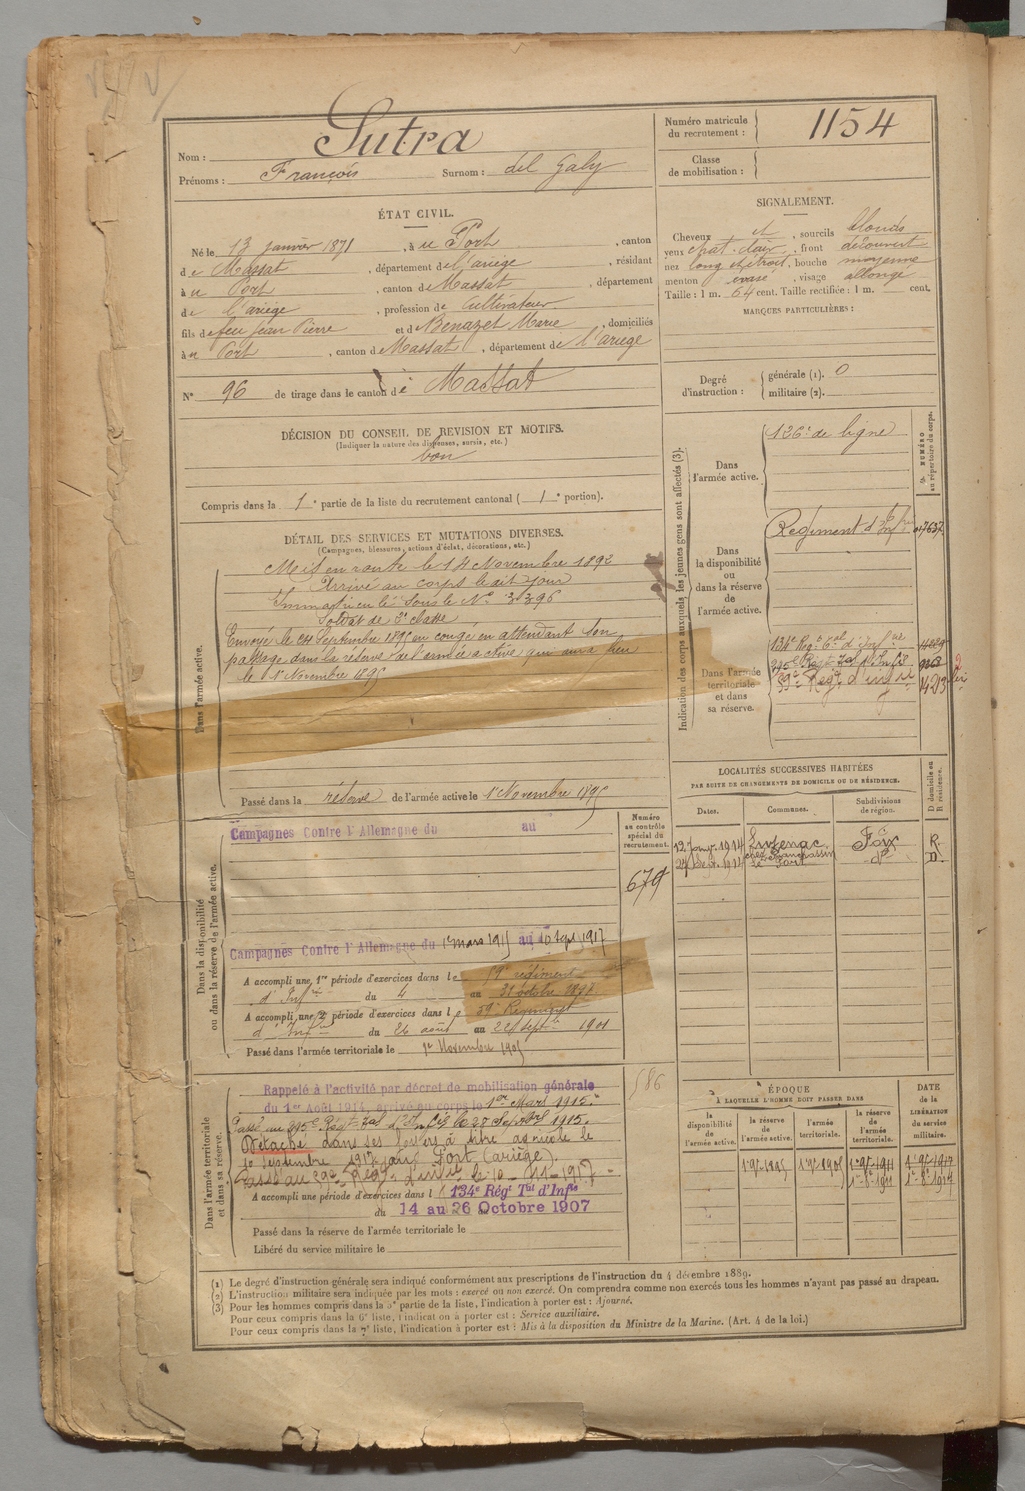 Nom : Sutra
Prénoms : François Surnom : del Galy
Numéro matricule du recrutement : 1154
Classe de mobilisation :
ÉTAT CIVIL.
Né le 13 janvier 1871, à u Port, canton
d e Massat, département de l'ariège, résidant
à u Port, canton de Massat, département
de l'ariège, profession de Cultivateur
fils de feu Jean Pierre et de Benazet Marie, domiciliés
à u Port, canton de Massat, département de l'ariège
N° 96 de tirage dans le canton de Massat
SIGNALEMENT.
Cheveux et, sourcils blonds
yeux chat. clair, front découvert
nez long et étroit, bouche moyenne
menton évasé, visage allongé
Taille : 1 m. 64 cent. Taille rectifiée : 1 m. cent.
MARQUES PARTICULIÈRES :
Degré d'instruction : générale (1). 0
militaire (2).
DÉCISION DU CONSEIL DE REVISION ET MOTIFS.
(Indiquer la nature des dispenses, sursis, etc.)
bon
Compris dans la 1e partie de la liste du recrutement cantonal (1e portion).
DÉTAIL DES SERVICES ET MUTATIONS DIVERSES.
(Campagnes, blessures, actions d'éclat, décorations, etc.)
Dans l'armée active.
Mis en route le 14 Novembre 1892
Arrivé au corps le dit jour
Immatriculé sous le N° 3396
Soldat de 2e classe
Envoyé le 24 Septembre 1895 en congé en attendant son
passage dans la réserve de l'armée active qui aura lieu
le 1er Novembre 1895
Passé dans la réserve de l'armée active le 1er Novembre 1895
Indication des corps auxquels les jeunes gens sont affectés (3).
NUMÉRO au répertoire du corps.
Dans l'armée active.
126e de ligne
Dans la disponibilité ou dans la réserve de l'armée active.
Régiment d'Infrie
Dans l'armée territoriale et dans sa réserve.
134e Régt Tal d'Infrie
395e Régt Tal d'Infie
59e Régt d'infie
LOCALITÉS SUCCESSIVES HABITÉES
PAR SUITE DE CHANGEMENTS DE DOMICILE OU DE RÉSIDENCE.
Dates. Communes. Subdivisions de région. D domicile ou R résidence.
12 Janvr 1914 Luzenac Foix R.
Le Port do D.
Dans la disponibilité ou dans la réserve de l'armée active.
Numéro au contrôle spécial du recrutement.
679
Campagnes Contre l'Allemagne du au
Campagnes Contre l'Allemagne du 1er mars 1915 au 10 Sept 1917
A accompli une 1re période d'exercices dans le 59e régiment
d'Infie du 4 au 31 octobre 1898
A accompli une 2e période d'exercices dans le 59e Régiment
d'Infie du 26 août au 22 Sept 1901
Passé dans l'armée territoriale le 1er Novembre 1905
Dans l'armée territoriale et dans sa réserve.
586
Rappelé à l'activité par décret de mobilisation générale
du 1er Août 1914, arrivé au corps le 1er Mars 1915.
Passé au 395e Régt Tal d'Infie le 27 Septbre 1915.
Détaché dans ses foyers à titre agricole le
10 Septembre 1917 au Port (ariège).
Passé au 59e Régt d'infie le 10-11-1917
A accompli une période d'exercices dans l 134e Régt Tal d'Infie
du 14 au 26 Octobre 1907
Passé dans la réserve de l'armée territoriale le
Libéré du service militaire le
ÉPOQUE
À LAQUELLE L'HOMME DOIT PASSER DANS
la disponibilité de l'armée active. la réserve de l'armée active. l'armée territoriale. la réserve de l'armée territoriale.
DATE de la LIBÉRATION du service militaire.
1er 9bre 1895 1er 9bre 1905 1er 9bre 1911 1er 9bre 1917
(1) Le degré d'instruction générale sera indiqué conformément aux prescriptions de l'instruction du 4 décembre 1889.
(2) L'instruction militaire sera indiquée par les mots : exercé ou non exercé. On comprendra comme non exercés tous les hommes n'ayant pas passé au drapeau.
(3) Pour les hommes compris dans la 5e partie de la liste, l'indication à porter est : Ajourné.
Pour ceux compris dans la 6e liste, l'indication à porter est : Service auxiliaire.
Pour ceux compris dans la 7e liste, l'indication à porter est : Mis à la disposition du Ministre de la Marine. (Art. 4 de la loi.)